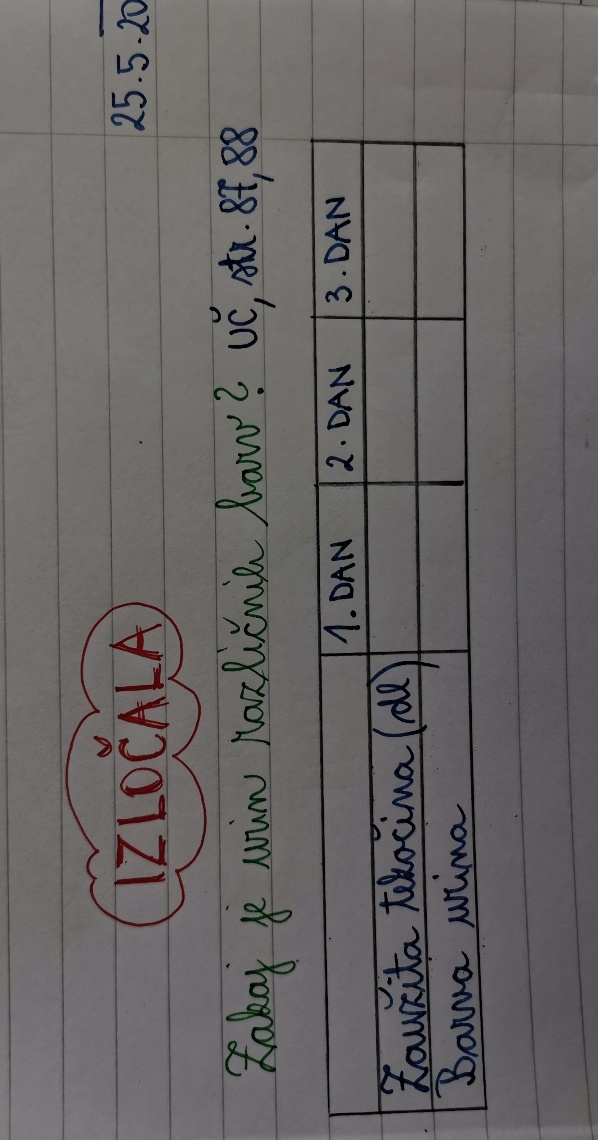 25.5.20
IZLOČALA
Zakaj je urin različnih barv? UČ, str. 87, 88
1. DAN 2. DAN 3. DAN
Zaužita tekočina (dl)
Barva urina